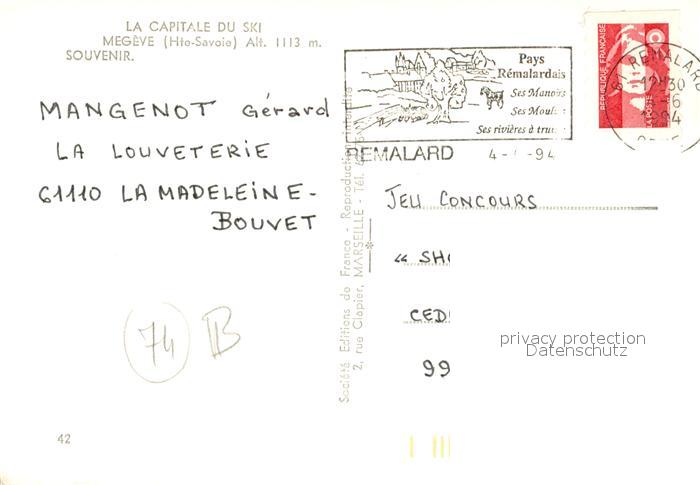 LA CAPITALE DU SKI
MEGÈVE (Hte-Savoie) Alt. 1113 m.
SOUVENIR.
MANGENOT Gérard
LA LOUVETERIE
61110 LA MADELEINE-
BOUVET
74 B
42
Société Editions de France - Reproduction interdite
2, rue Clapier, MARSEILLE - Tél.
Pays
Rémalardais
Ses Manoirs
Ses Moul
Ses rivières à trui
REMALARD 4- -94
RÉPUBLIQUE FRANÇAISE
LA POSTE
61 REMALARD
12H30
-6
1994
ORNE
JEU CONCOURS
“ SH
CED
99
privacy protection
Datenschutz